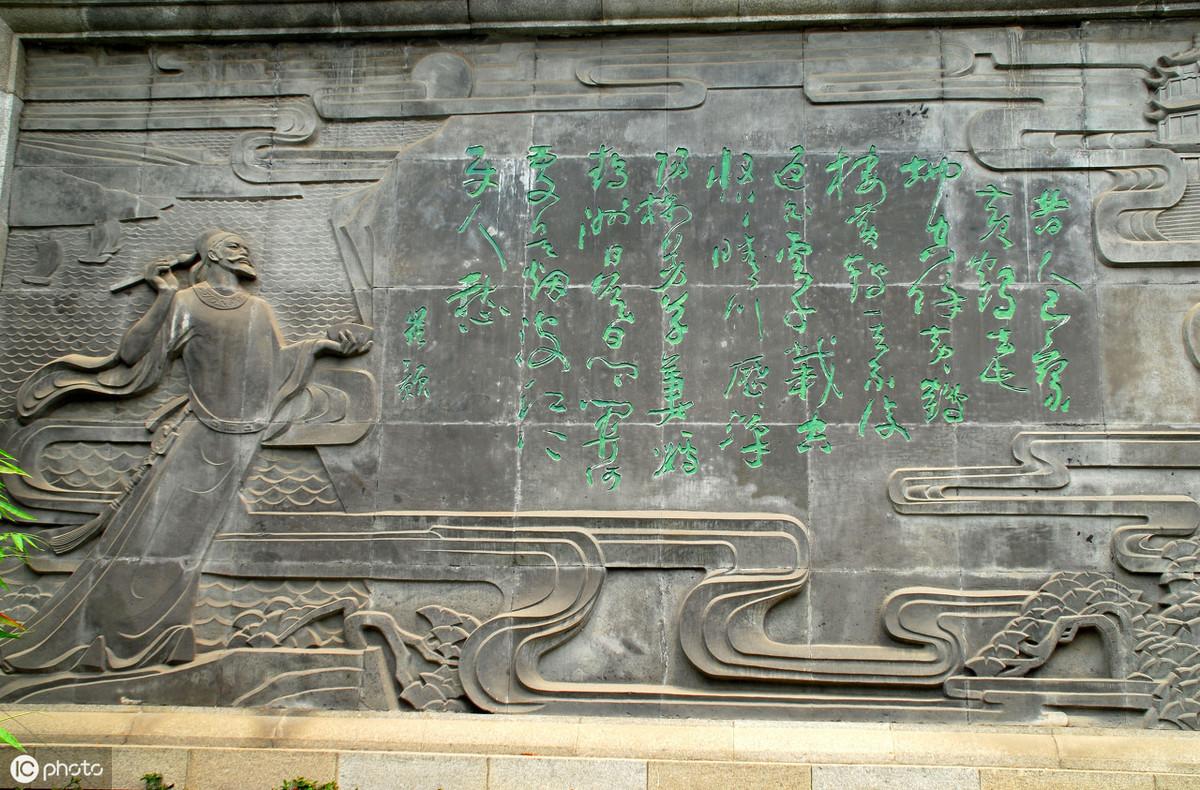 昔人已乘
黄鹤去此
地空余黄鹤
楼黄鹤一去不復
返白雲千載空
悠悠晴川歷歷漢
陽樹芳草萋萋鸚
鵡洲日暮鄉關何
處是烟波江上
使人愁
崔颢
IC photo